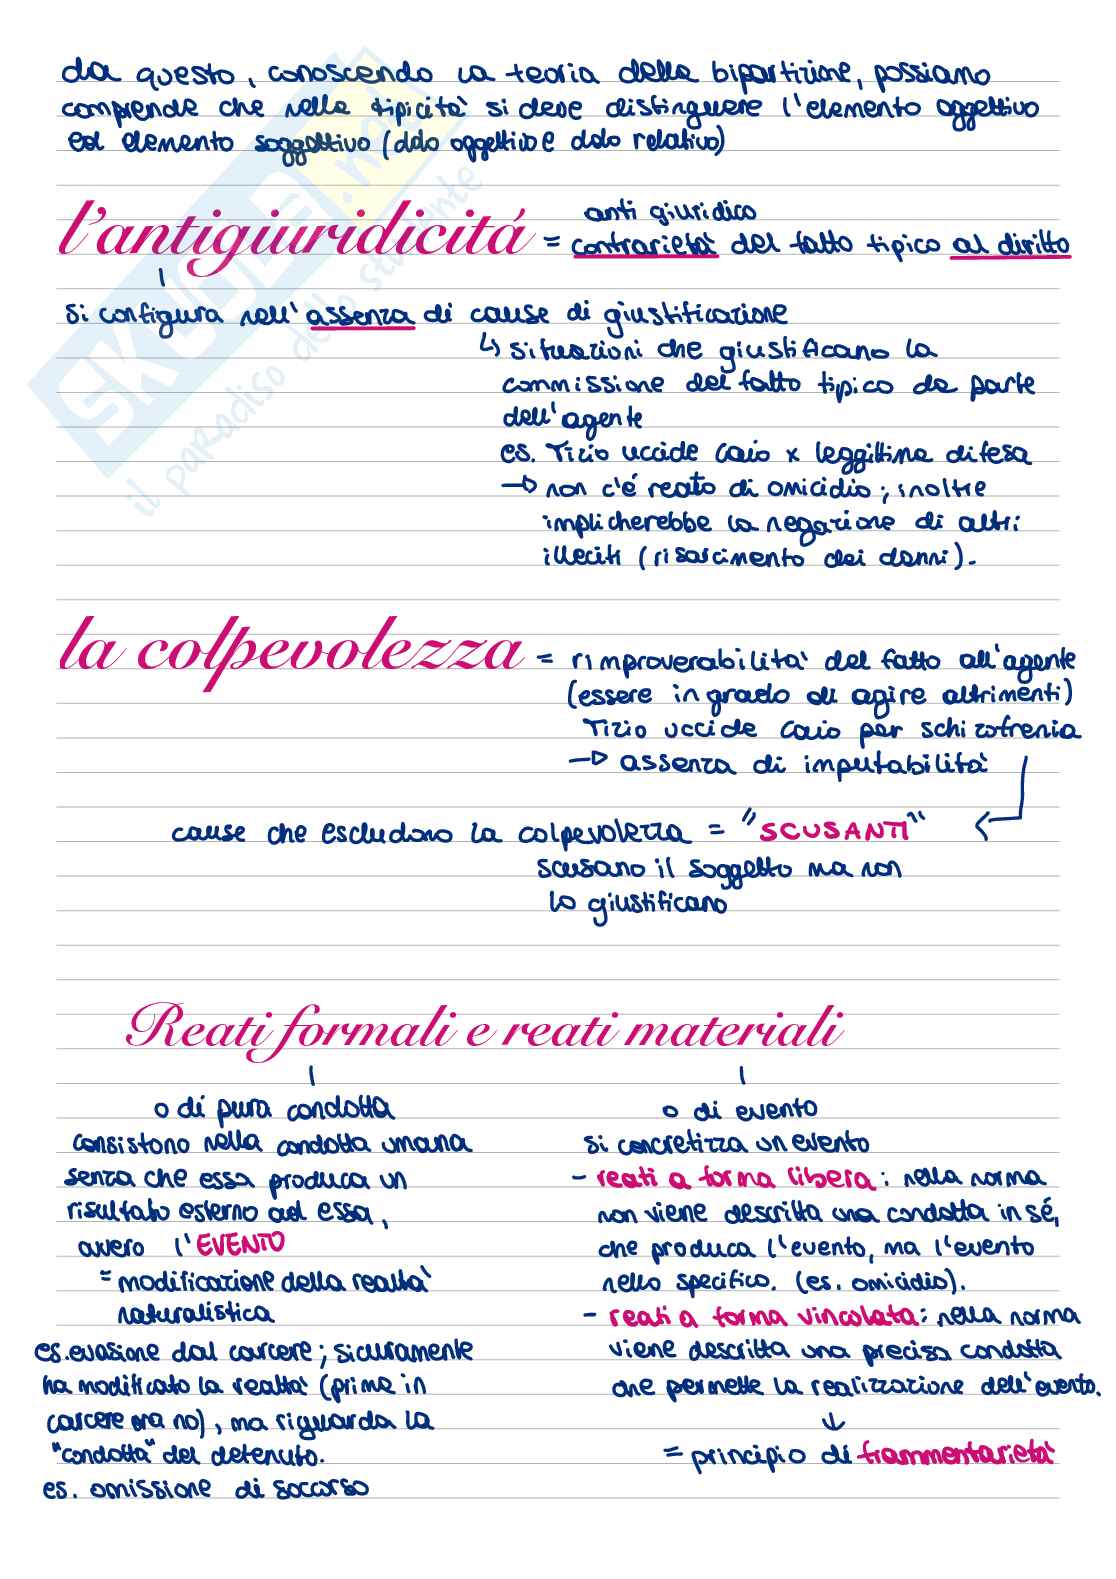 da questo, conoscendo la teoria della bipartizione, possiamo
comprende che nella tipicità si deve distinguere l'elemento oggettivo
ed elemento soggettivo (dolo oggettivo e dolo relativo)
anti giuridico
l'antigiuridicitá = contrarietà del fatto tipico al diritto
si configura nell'assenza di cause di giustificazione
↳ situazioni che giustificano la
commissione del fatto tipico da parte
dell'agente
es. Tizio uccide Caio x leggittima difesa
→ non c'é reato di omicidio; inoltre
implicherebbe la negazione di altri
illeciti (risarcimento dei danni).
la colpevolezza = rimproverabilità del fatto all'agente
(essere in grado di agire altrimenti)
Tizio uccide Caio per schizofrenia
→ assenza di imputabilità
cause che escludono la colpevolezza = "SCUSANTI"
scusano il soggetto ma non
lo giustificano
Reati formali e reati materiali
o di pura condotta
consistono nella condotta umana
senza che essa produca un
risultato esterno ad essa,
ovvero l'EVENTO
= modificazione della realtà
naturalistica
es. evasione dal carcere; sicuramente
ha modificato la realtà (prima in
carcere ora no), ma riguarda la
"condotta" del detenuto.
es. omissione di soccorso
o di evento
si concretizza un evento
- reati a forma libera: nella norma
non viene descritta una condotta in sé,
che produca l'evento, ma l'evento
nello specifico. (es. omicidio).
- reati a forma vincolata: nella norma
viene descritta una precisa condotta
che permette la realizzazione dell'evento.
↓
= principio di frammentarietà
SKUOLA.net
il paradiso dello studente